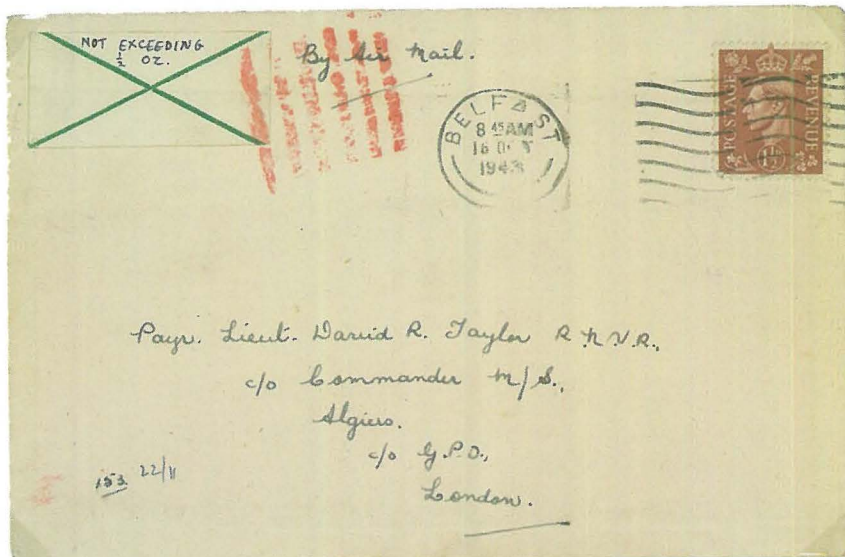 NOT EXCEEDING
½ OZ.
By Air Mail.
BELFAST
8 45 AM
16 OCT
1943
POSTAGE REVENUE
1½D
Payr. Lieut. David R. Taylor R.N.V.R.,
c/o Commander M/S.,
Algiers.
c/o G.P.O.,
London.
153 22/11